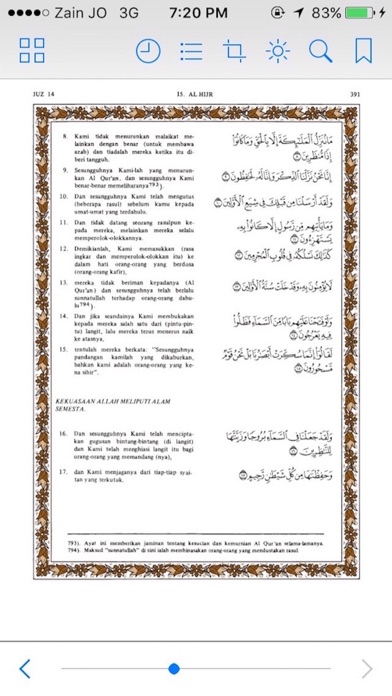 Zain JO 3G 7:20 PM 83%
JUZ 14 15. AL HIJR 391
8. Kami tidak menurunkan malaikat me-
lainkan dengan benar (untuk membawa
azab) dan tiadalah mereka ketika itu di-
beri tangguh.
9. Sesungguhnya Kami-lah yang menurun-
kan Al Qur'an, dan sesungguhnya Kami
benar-benar memeliharanya793).
10. Dan sesungguhnya Kami telah mengutus
(beberapa rasul) sebelum kamu kepada
umat-umat yang terdahulu.
11. Dan tidak datang seorang rasulpun ke-
pada mereka, melainkan mereka selalu
memperolok-olokkannya.
12. Demikianlah, Kami memasukkan (rasa
ingkar dan memperolok-olokkan itu) ke
dalam hati orang-orang yang berdosa
(orang-orang kafir),
13. mereka tidak beriman kepadanya (Al
Qur'an) dan sesungguhnya telah berlalu
sunnatullah terhadap orang-orang dahu-
lu794).
14. Dan jika seandainya Kami membukakan
kepada mereka salah satu dari (pintu-pin-
tu) langit, lalu mereka terus menerus naik
ke atasnya,
15. tentulah mereka berkata: "Sesungguhnya
pandangan kamilah yang dikaburkan,
bahkan kami adalah orang-orang yang ke-
na sihir".
KEKUASAAN ALLAH MELIPUTI ALAM
SEMESTA.
16. Dan sesungguhnya Kami telah mencipta-
kan gugusan bintang-bintang (di langit)
dan Kami telah menghiasi langit itu bagi
orang-orang yang memandang (nya),
17. dan Kami menjaganya dari tiap-tiap syai-
tan yang terkutuk.
مَا نُنَزِّلُ الْمَلَٰٓئِكَةَ إِلَّا بِالْحَقِّ وَمَا كَانُوٓا
إِذًا مُّنظَرِينَ ۝٨
إِنَّا نَحْنُ نَزَّلْنَا الذِّكْرَ وَإِنَّا لَهُۥ لَحَٰفِظُونَ ۝٩
وَلَقَدْ أَرْسَلْنَا مِن قَبْلِكَ فِى شِيَعِ الْأَوَّلِينَ ۝١٠
وَمَا يَأْتِيهِم مِّن رَّسُولٍ إِلَّا كَانُوا بِهِۦ
يَسْتَهْزِءُونَ ۝١١
كَذَٰلِكَ نَسْلُكُهُۥ فِى قُلُوبِ الْمُجْرِمِينَ ۝١٢
لَا يُؤْمِنُونَ بِهِۦ وَقَدْ خَلَتْ سُنَّةُ الْأَوَّلِينَ ۝١٣
وَلَوْ فَتَحْنَا عَلَيْهِم بَابًا مِّنَ السَّمَآءِ فَظَلُّوا
فِيهِ يَعْرُجُونَ ۝١٤
لَقَالُوٓا إِنَّمَا سُكِّرَتْ أَبْصَٰرُنَا بَلْ نَحْنُ قَوْمٌ
مَّسْحُورُونَ ۝١٥
وَلَقَدْ جَعَلْنَا فِى السَّمَآءِ بُرُوجًا وَزَيَّنَّٰهَا
لِلنَّٰظِرِينَ ۝١٦
وَحَفِظْنَٰهَا مِن كُلِّ شَيْطَٰنٍ رَّجِيمٍ ۝١٧
793). Ayat ini memberikan jaminan tentang kesucian dan kemurnian Al Qur'an selama-lamanya.
794). Maksud "sunnatullah" di sini ialah membinasakan orang-orang yang mendustakan rasul.